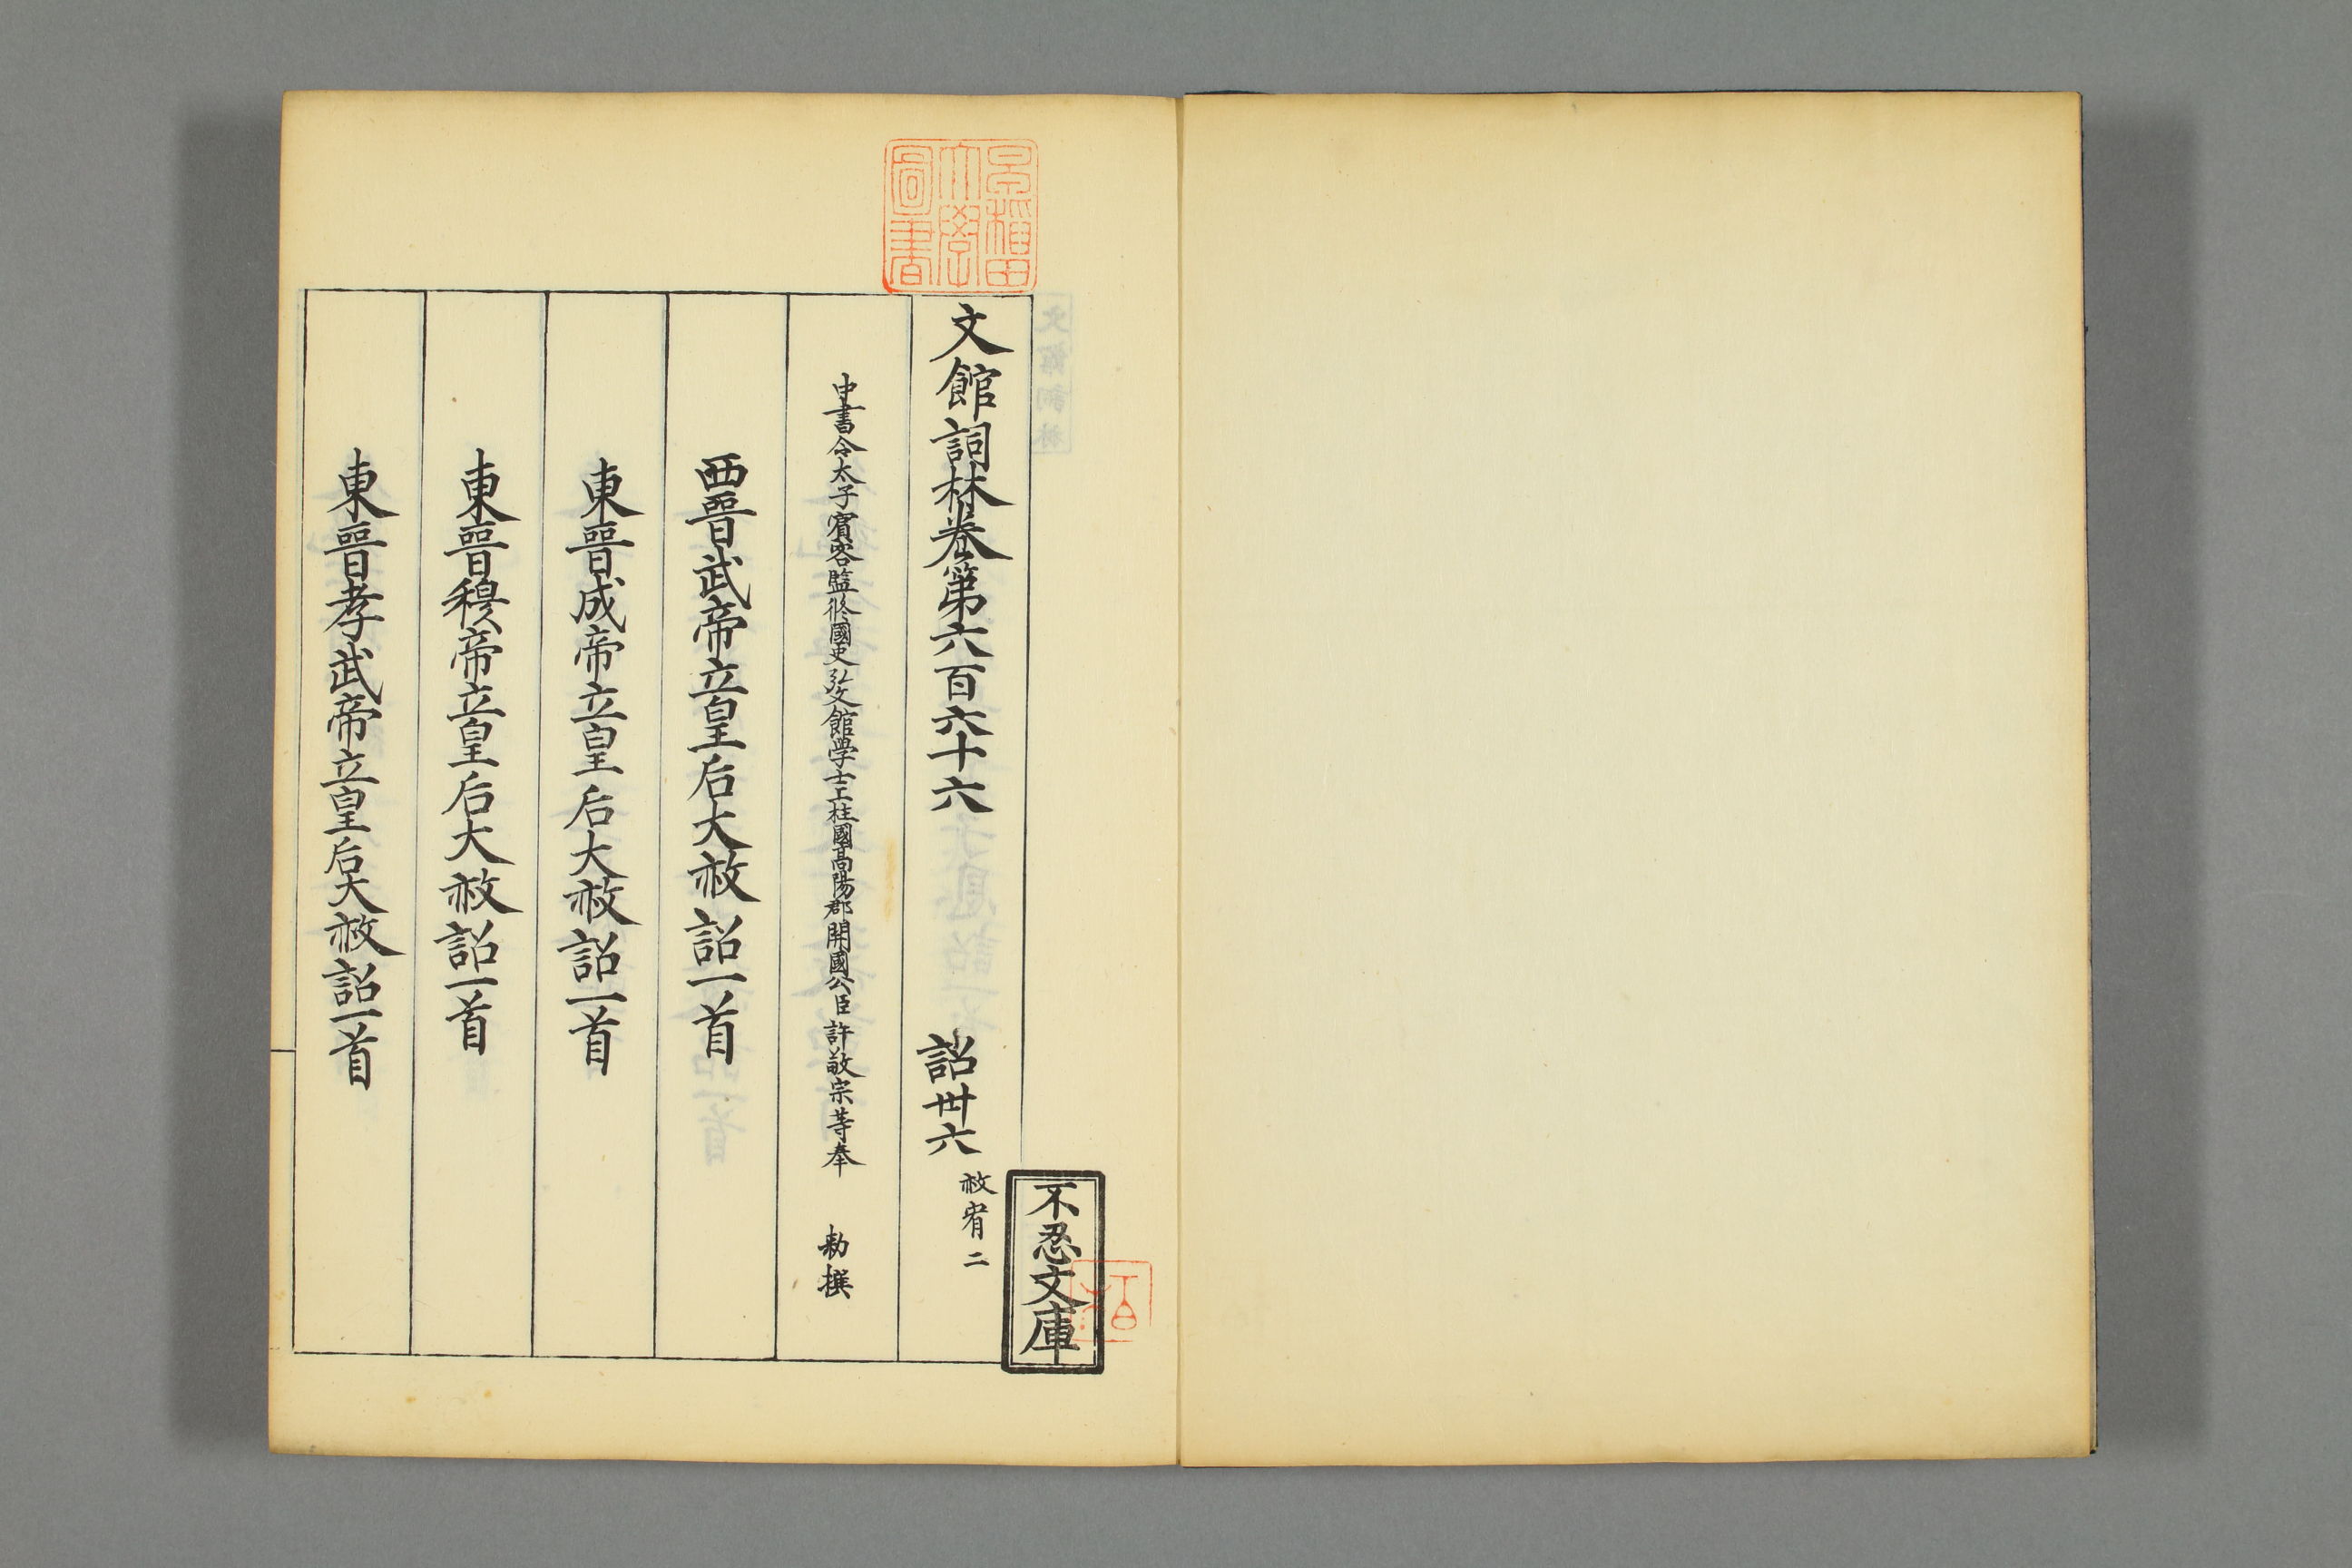 文館詞林卷第六百六十六 詔卅六 赦宥二
中書令太子賓客監修國史弘文館學士上柱國高陽郡開國公臣許敬宗等奉 勑撰
西晉武帝立皇后大赦詔一首
東晉成帝立皇后大赦詔一首
東晉穆帝立皇后大赦詔一首
東晉孝武帝立皇后大赦詔一首
不忍文庫
早稲田
大學
圖書